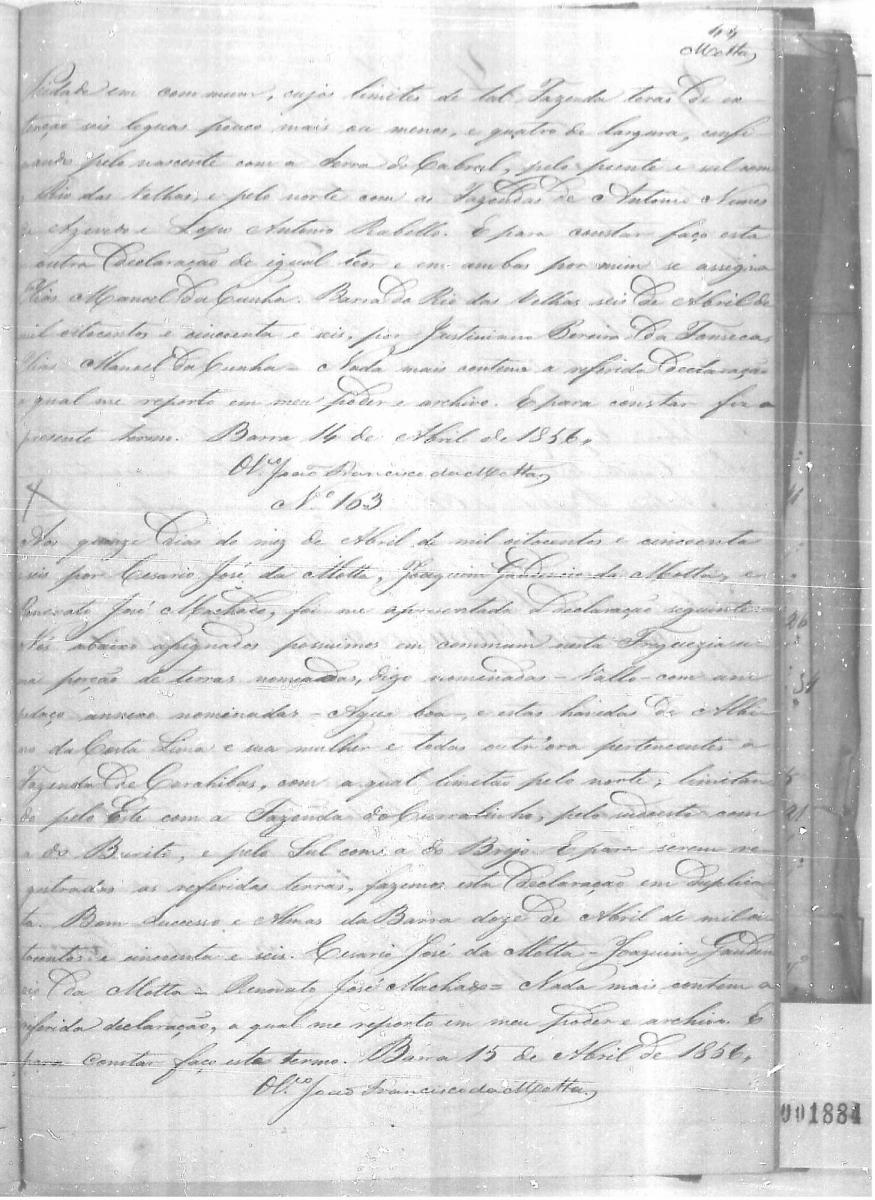 44
Motta
em commum, cujos limites de tal Fazenda terás de ex-
tenção seis leguas pouco mais ou menos, e quatro de largura, confi-
nando pelo nascente com a Serra do Cabral, pelo poente e sul com
o Rio das Velhas, e pelo norte com as Fazendas de Antonio Nunes
de Azevedo e Lopo Antonio Rabello. E para constar faço esta
e outra declaração de igual teor e em ambas por mim se assigna
Elias Manoel da Cunha. Barra do Rio das Velhas seis de Abril de
mil oitocentos e cincoenta e seis, por Justiniano Pereira da Fonseca,
Elias Manoel da Cunha = Nada mais contem a referida declaração
a qual me reporto em meu poder e archivo. E para constar fiz o
presente termo. Barra 14 de Abril de 1856,
O Vi.co João Francisco da Motta
N.o 163
Aos quinze dias do mez de Abril de mil oitocentos e cincoenta
e seis por Cesario José da Motta, Joaquim Gaudencio da Motta, e
Renovato José Machado, foi me apresentada Declaração seguinte =
Nós abaixo assignados possuimos em commum nesta Freguezia u-
ma porção de terras nomeadas, digo nominadas - Vallo - com um
pedaço annexo nominadas - Agua boa -, e estas havidas de Albi-
no da Costa Lima e sua mulher e todas outr'ora pertencentes a
Fazenda de Carahibas, com a qual limitão pelo norte, limitan-
do pelo Este com a Fazenda do Curralinho, pelo com
a do Buriti, e pelo Sul com a do Brejo. E para serem re-
gistradas as referidas terras, fazemos esta Declaração em duplica-
ta. Bom Successo e Almas da Barra doze de Abril de mil oi-
tocentos e cincoenta e seis. Cesario José da Motta - Joaquim Gauden-
cio da Motta = Renovato José Machado = Nada mais contem a
referida declaração, a qual me reporto em meu poder e archivo. E
para constar faço este termo. Barra 15 de Abril de 1856,
O Vi.co João Francisco da Motta
001884